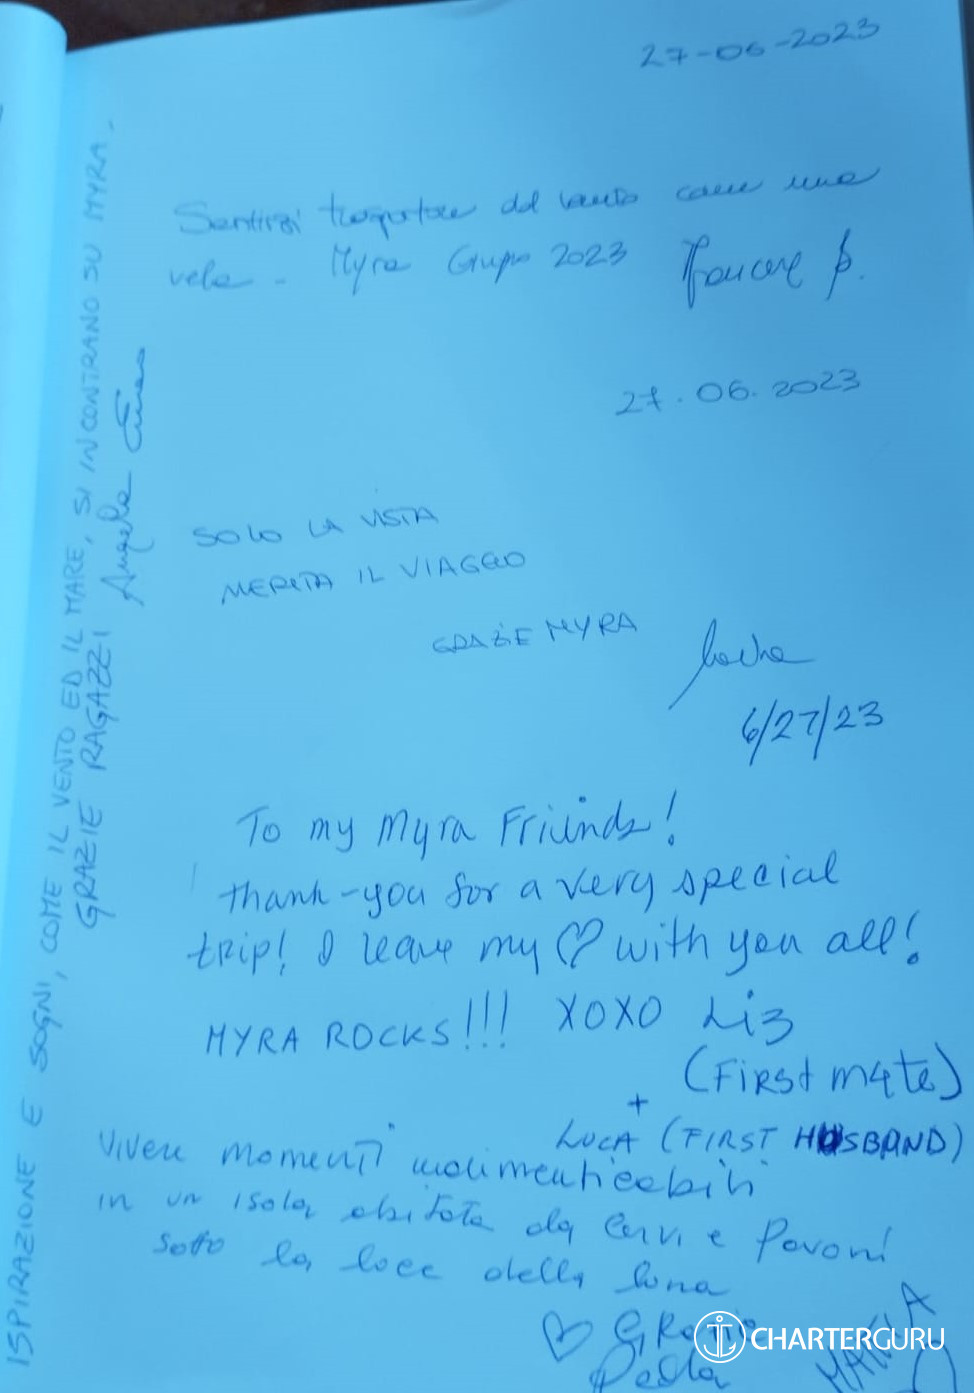 27-06-2023
Sentirsi trasportare dal vento come una
vela - Myra Grupo 2023
27.06.2023
SOLO LA VISTA
MERITA IL VIAGGIO
GRAZIE MYRA
6/27/23
To my Myra Friends!
thank-you for a very special
trip! I leave my ♡ with you all!
MYRA ROCKS!!! XOXO Liz
(First m4te)
+
LUCA (FIRST HUSBAND)
Vivere momenti indimenticabili
in un isola abitata da Cervi e Pavoni
sotto la luce della luna
♡ GRazie
Paola
ISPIRAZIONE E SOGNI, COME IL VENTO ED IL MARE, SI INCONTRANO SU MYRA.
GRAZIE RAGAZZI Angela
CHARTERGURU